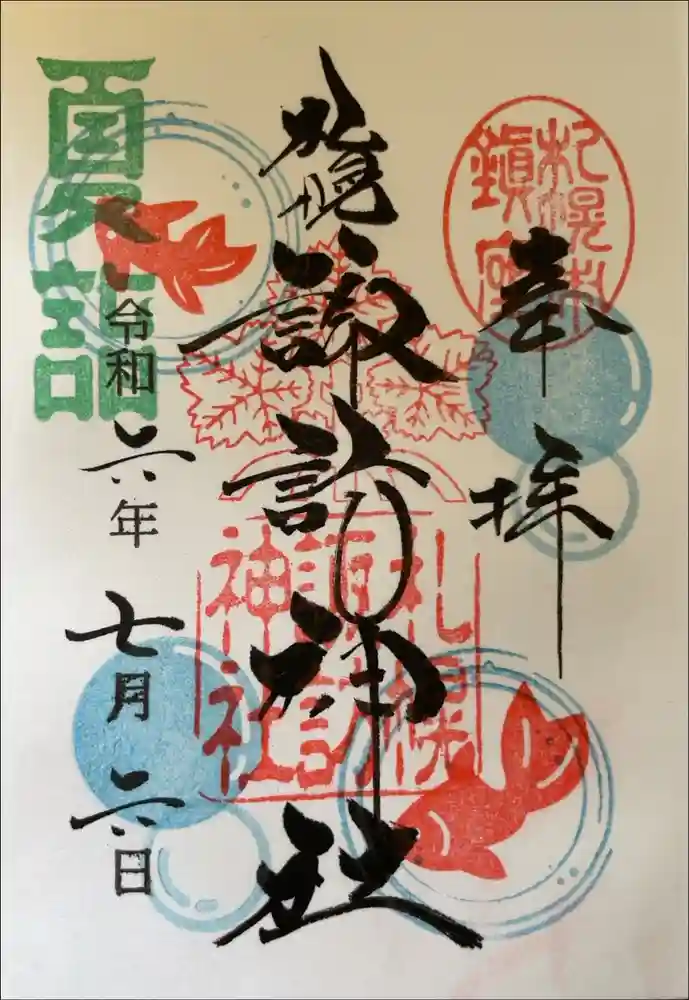 札幌市
鎮座
奉拝
札幌諏訪神社
札幌
諏訪
神社
夏詣
令和六年七月六日